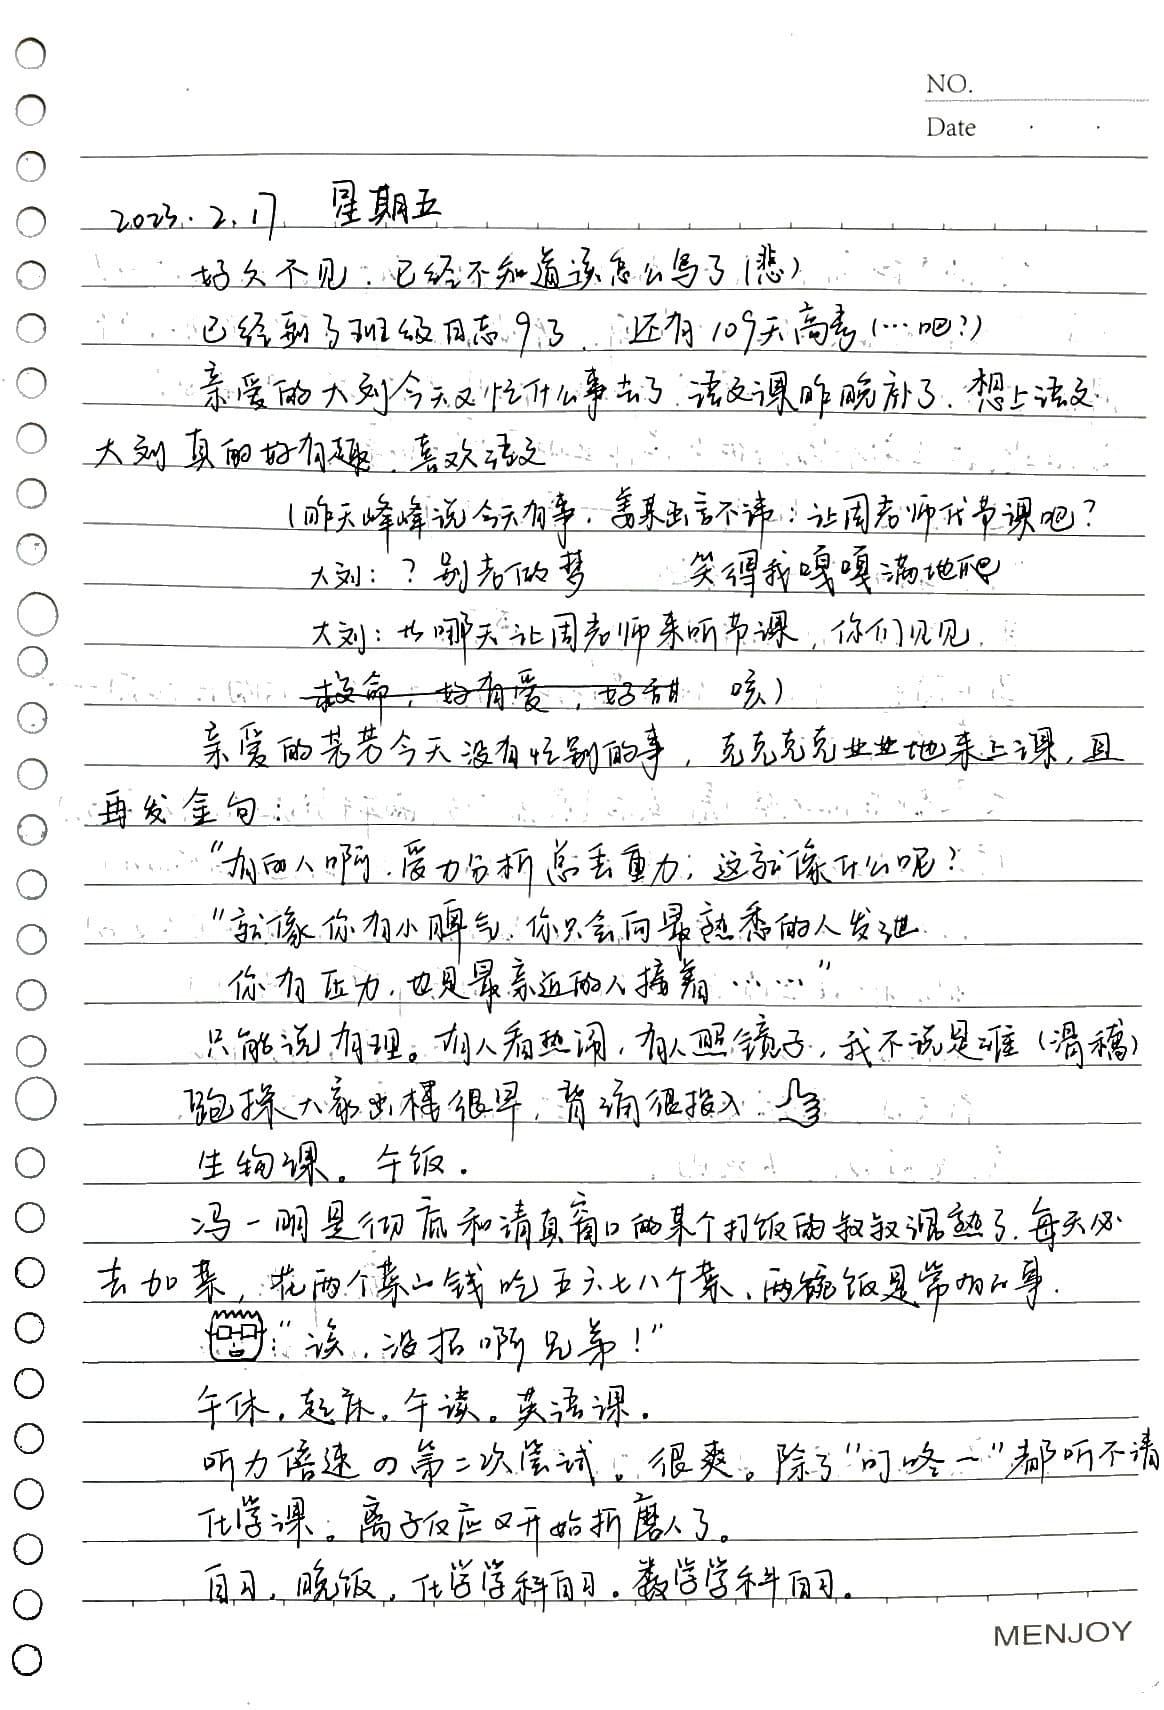 NO.
Date
2023.2.17 星期五
好久不见，已经不知道该怎么写了(悲)
已经到了班级日志9了，还有109天高考(…吧?)
亲爱的大刘今天又忙什么事去了，语文课昨晚补了，想上语文
大刘真的好有趣，喜欢语文
(昨天峰峰说今天有事，姜某出言不讳：让周老师代节课吧?
大刘：？别老做梦 笑得我嘎嘎满地爬
大刘：哪天让周老师来听节课，你们见见.
救命，好有爱，好甜 咳)
亲爱的芳芳今天没有忙别的事，克克克克业业地来上课，且
再发金句：
“有的人啊，受力分析总丢重力；这就像什么呢?
“就像你有小脾气，你只会向最熟悉的人发泄
你有压力，也是最亲近的人接着……”
只能说有理。有人看热闹，有人照镜子，我不说是谁(滑稽)
跑操大家出楼很早，背诵很投入
生物课。午饭.
冯一明是彻底和清真窗口的某个打饭的叔叔混熟了，每天必
去加菜，花两个菜的钱吃五六七八个菜、两碗饭是常有的事.
：“诶，没招啊兄弟！”
午休，起床。午读。英语课.
听力倍速の第二次尝试。很爽。除了“叮咚~”都听不清
化学课。离子反应又开始折磨人了。
自习，晚饭，化学学科自习。数学学科自习。
MENJOY